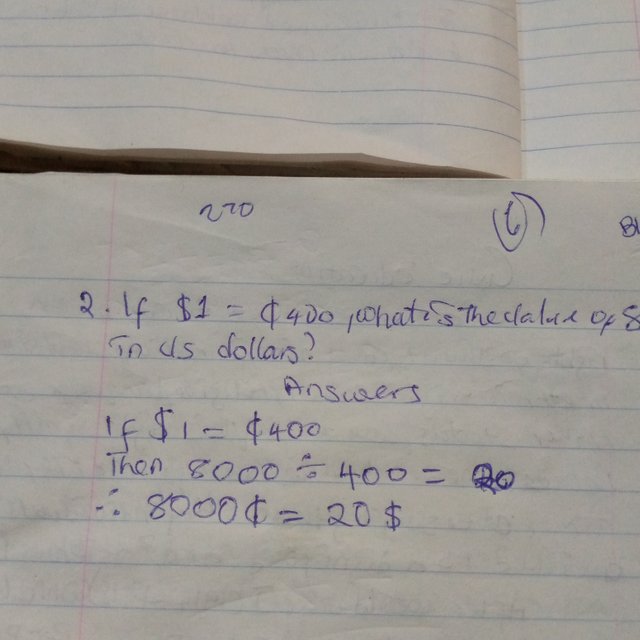 2. If $1 = ₵400, what is the value of 8
In US dollars?
Answers
If $1 = ₵400
Then 8000 ÷ 400 = 20
∴ 8000₵ = 20$